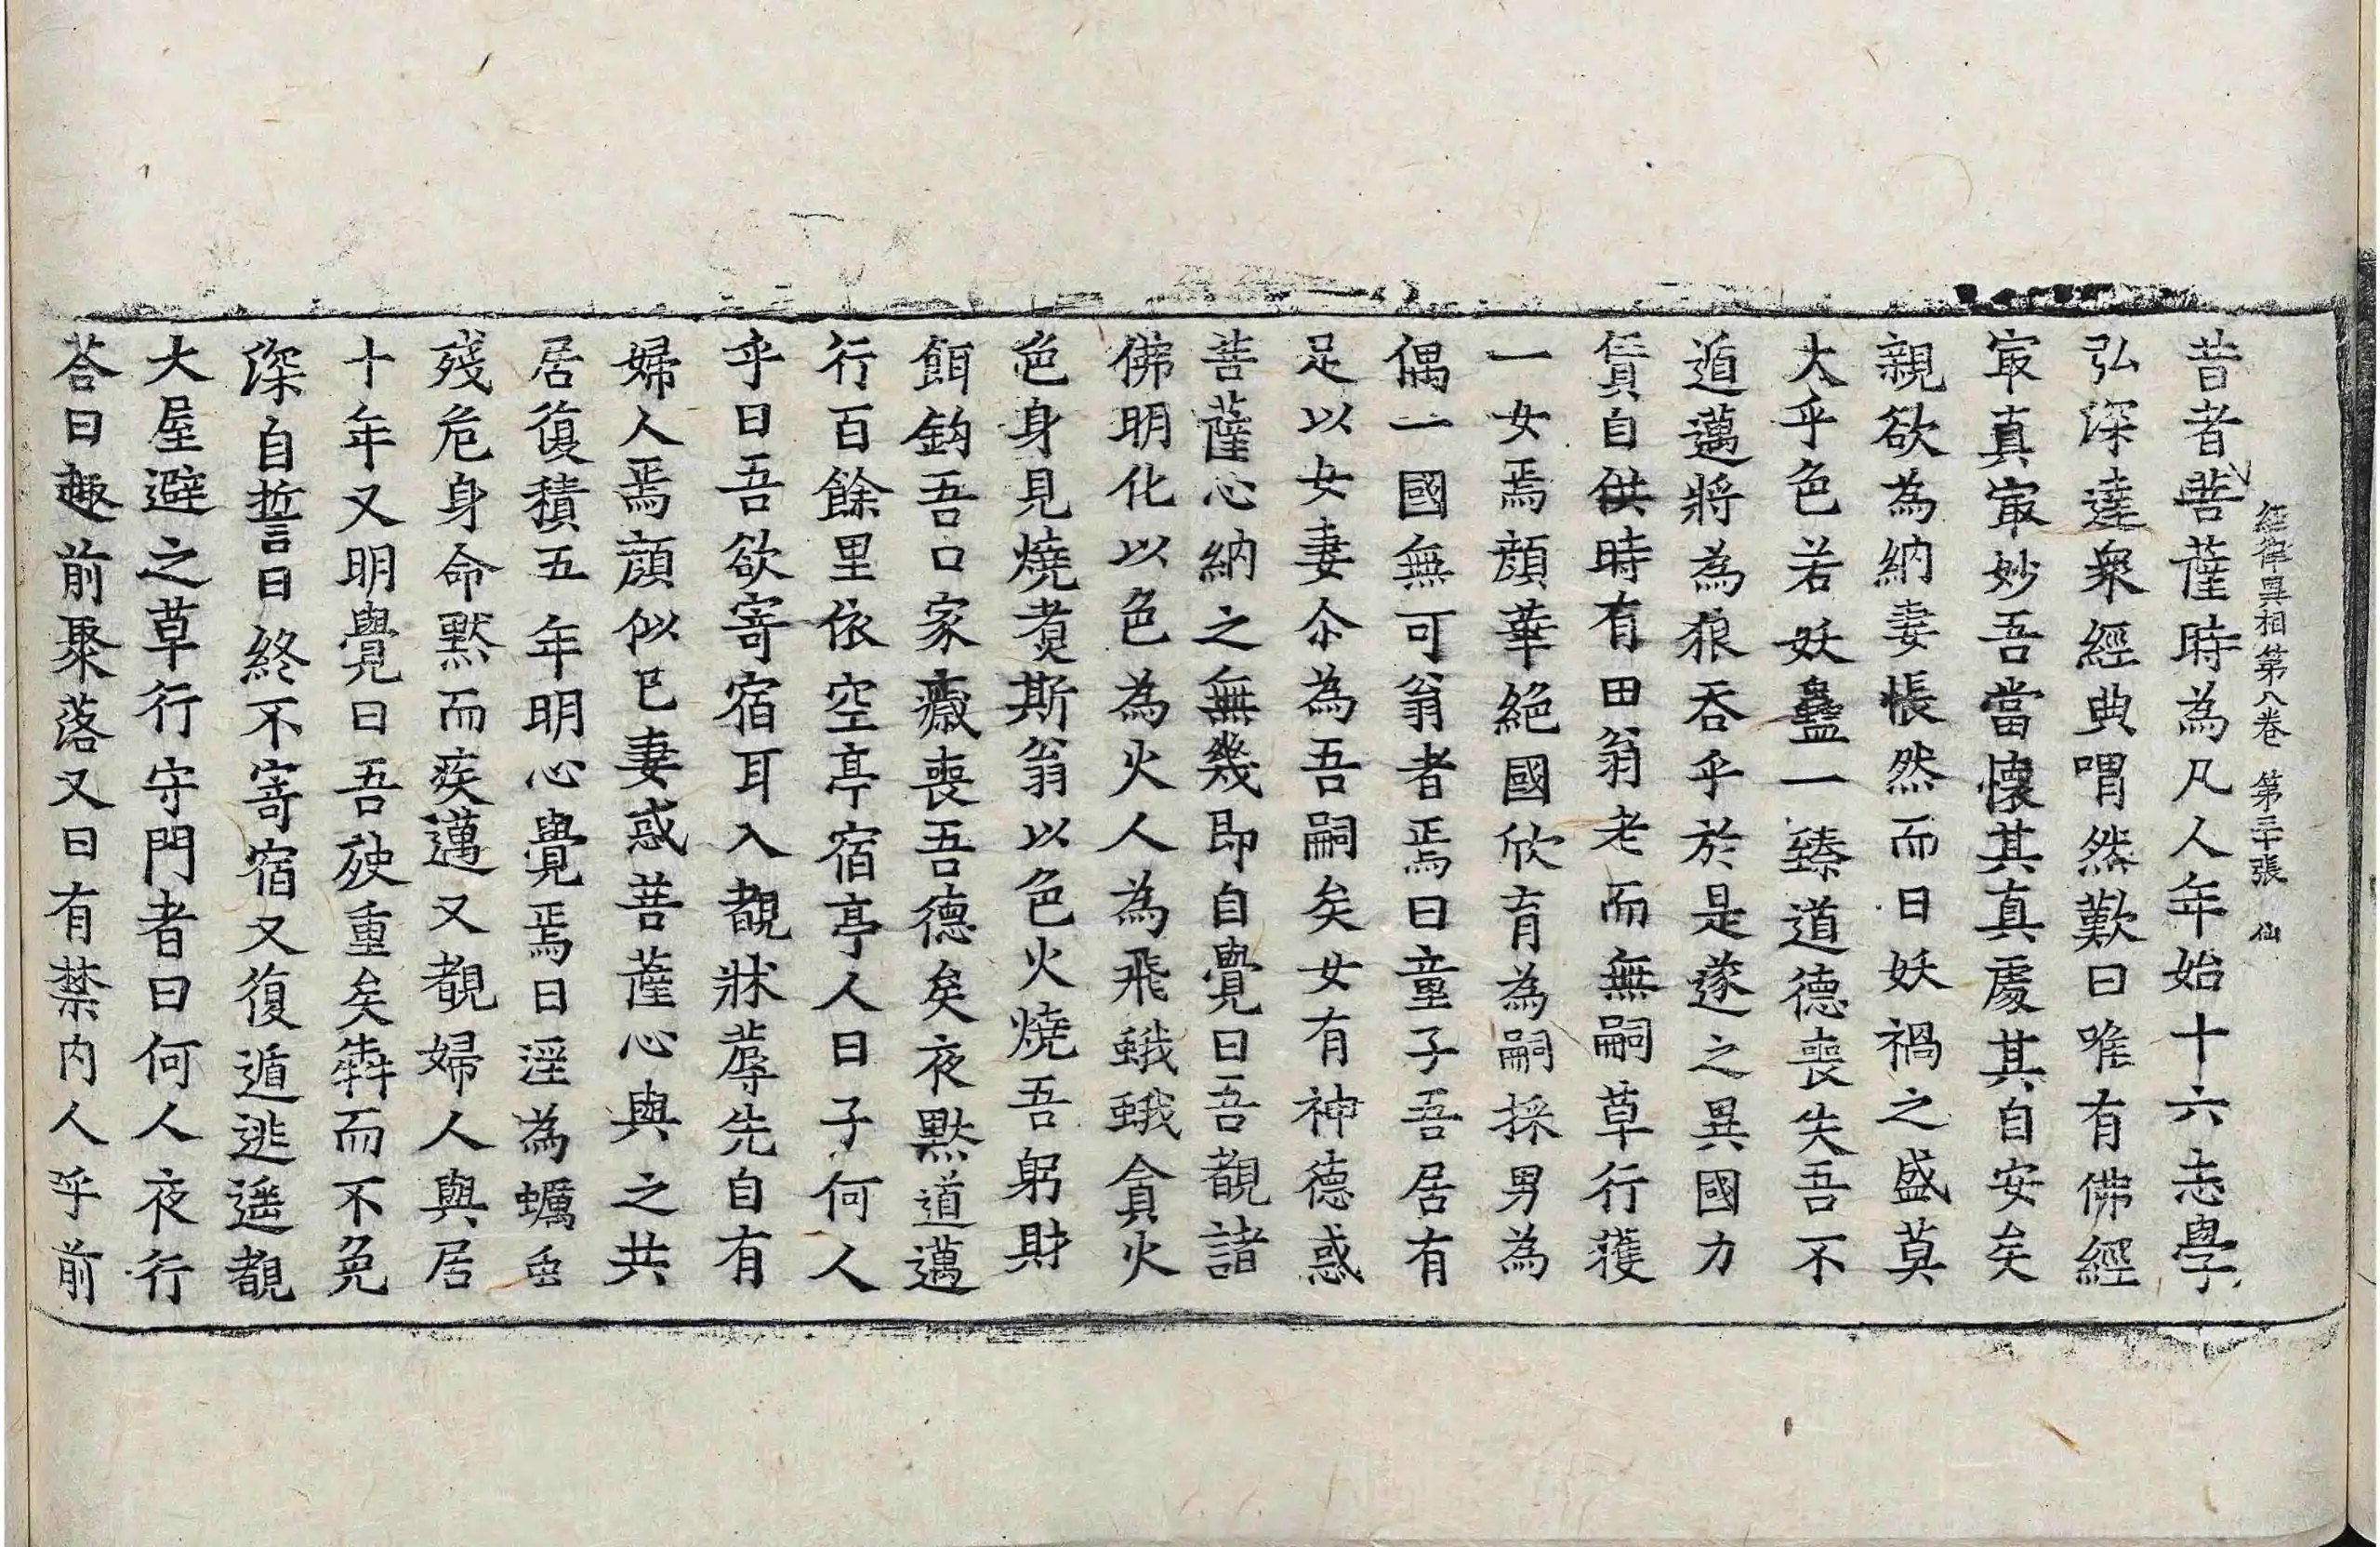 經律異相第八卷 第二十張 仙
昔者菩薩時為凡人年始十六志學
弘深達衆經典喟然歎曰唯有佛經
冣真冣妙吾當懷其真處其自安矣
親欲為納妻悵然而曰妖禍之盛莫
大乎色若妖蠱一臻道德喪失吾不
遁邁將為狼吞乎於是遂之異國力
賃自供時有田翁老而無嗣草行獲
一女焉顔華絕國欣育為嗣採男為
偶一國無可翁者焉曰童子吾居有
足以女妻尒為吾嗣矣女有神德惑
菩薩心納之無幾即自覺曰吾覩諸
佛明化以色為火人為飛蛾蛾貪火
色身見燒煑斯翁以色火燒吾躬財
餌鈎吾口家癥喪吾德矣夜默遁邁
行百餘里依空亭宿亭人曰子何人
乎曰吾欲寄宿耳入覩牀蓐先自有
婦人焉顔似已妻惑菩薩心與之共
居復積五年明心覺焉曰淫為蠣虫
殘危身命默而疾邁又覩婦人與居
十年又明覺曰吾殃重矣犇而不免
深自誓曰終不寄宿又復遁逃遥覩
大屋避之草行守門者曰何人夜行
荅曰趣前聚落又曰有禁内人呼前